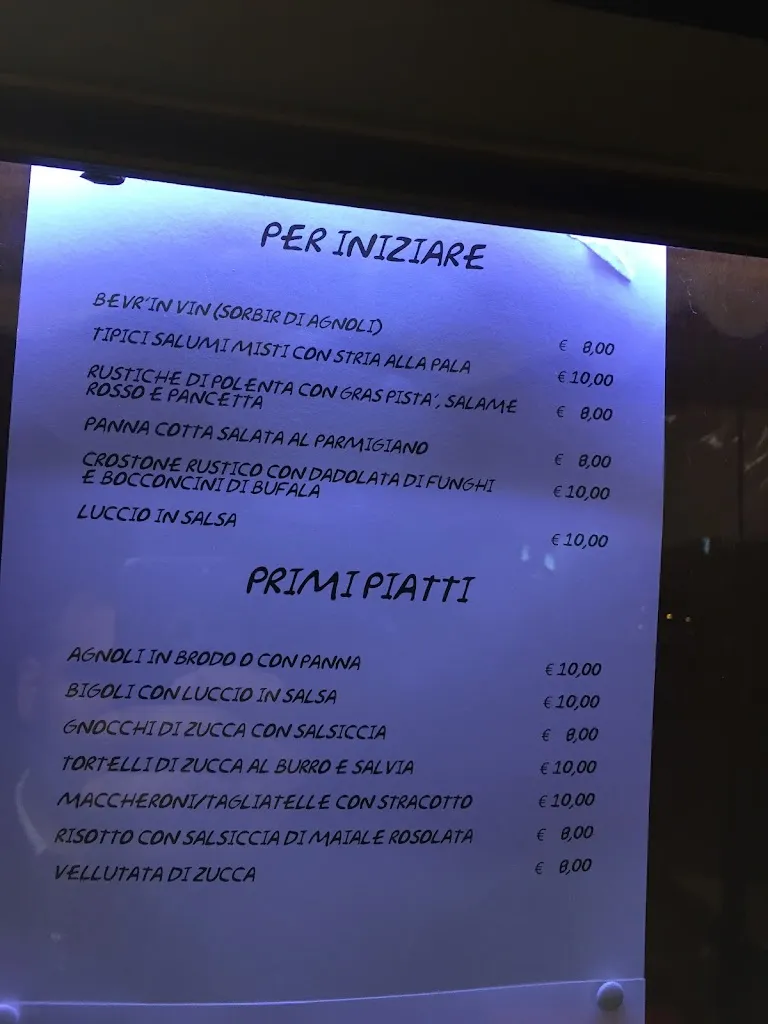 PER INIZIARE
BEVR'IN VIN (SORBIR DI AGNOLI) € 8,00
TIPICI SALUMI MISTI CON STRIA ALLA PALA € 10,00
RUSTICHE DI POLENTA CON GRAS PISTA', SALAME € 8,00
ROSSO E PANCETTA
PANNA COTTA SALATA AL PARMIGIANO € 8,00
CROSTONE RUSTICO CON DADOLATA DI FUNGHI € 10,00
E BOCCONCINI DI BUFALA
LUCCIO IN SALSA € 10,00
PRIMI PIATTI
AGNOLI IN BRODO O CON PANNA € 10,00
BIGOLI CON LUCCIO IN SALSA € 10,00
GNOCCHI DI ZUCCA CON SALSICCIA € 8,00
TORTELLI DI ZUCCA AL BURRO E SALVIA € 10,00
MACCHERONI/TAGLIATELLE CON STRACOTTO € 10,00
RISOTTO CON SALSICCIA DI MAIALE ROSOLATA € 8,00
VELLUTATA DI ZUCCA € 8,00